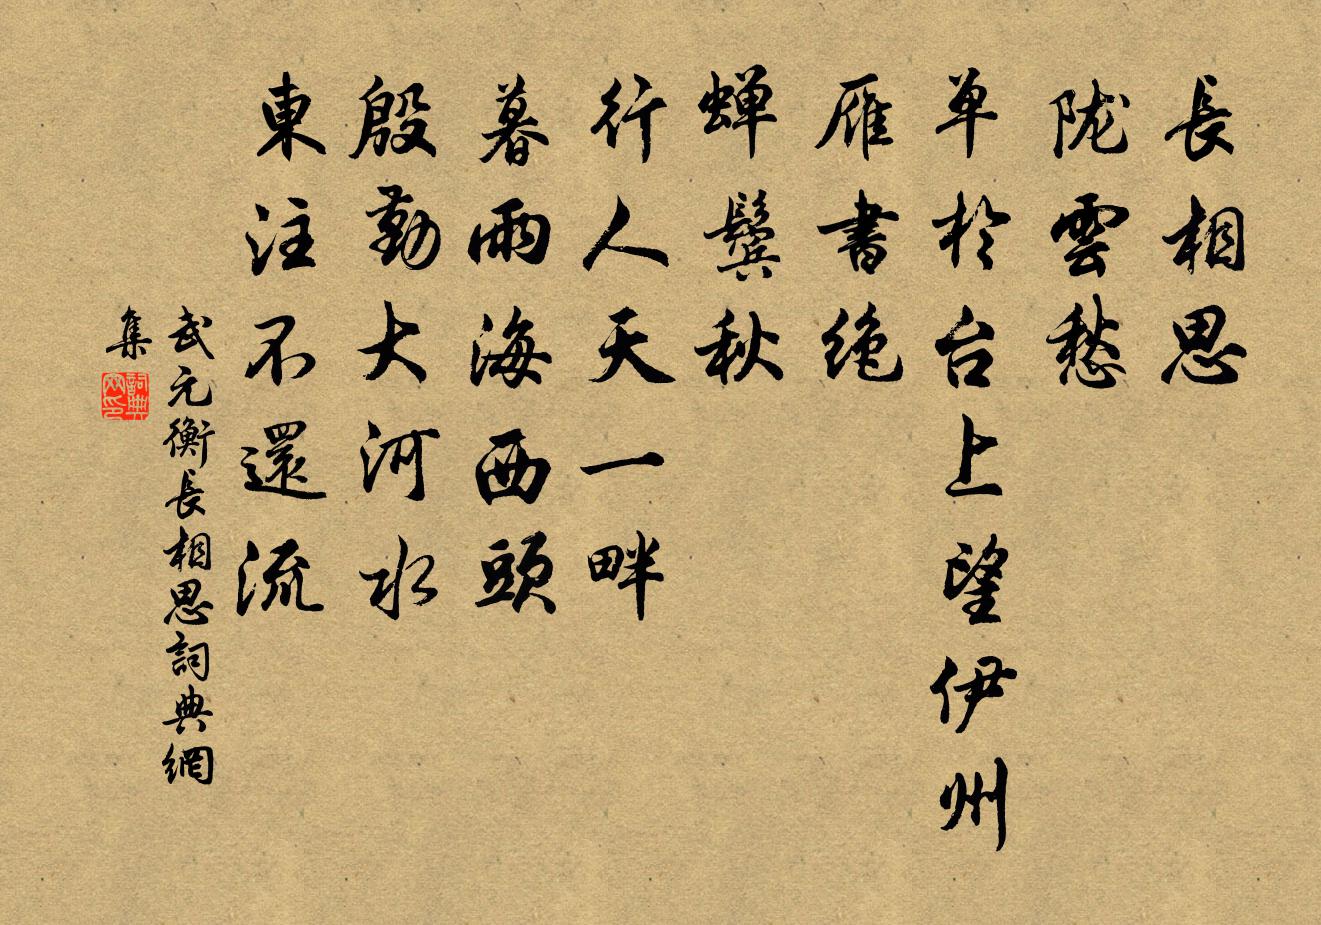 長相思
陇雲愁
单於台上望伊州
雁書絶
蝉鬓秋
行人天一畔
暮雨海西頭
殷勤大河水
東注不還流
武元衡長相思詞典網
集
詞典
网印